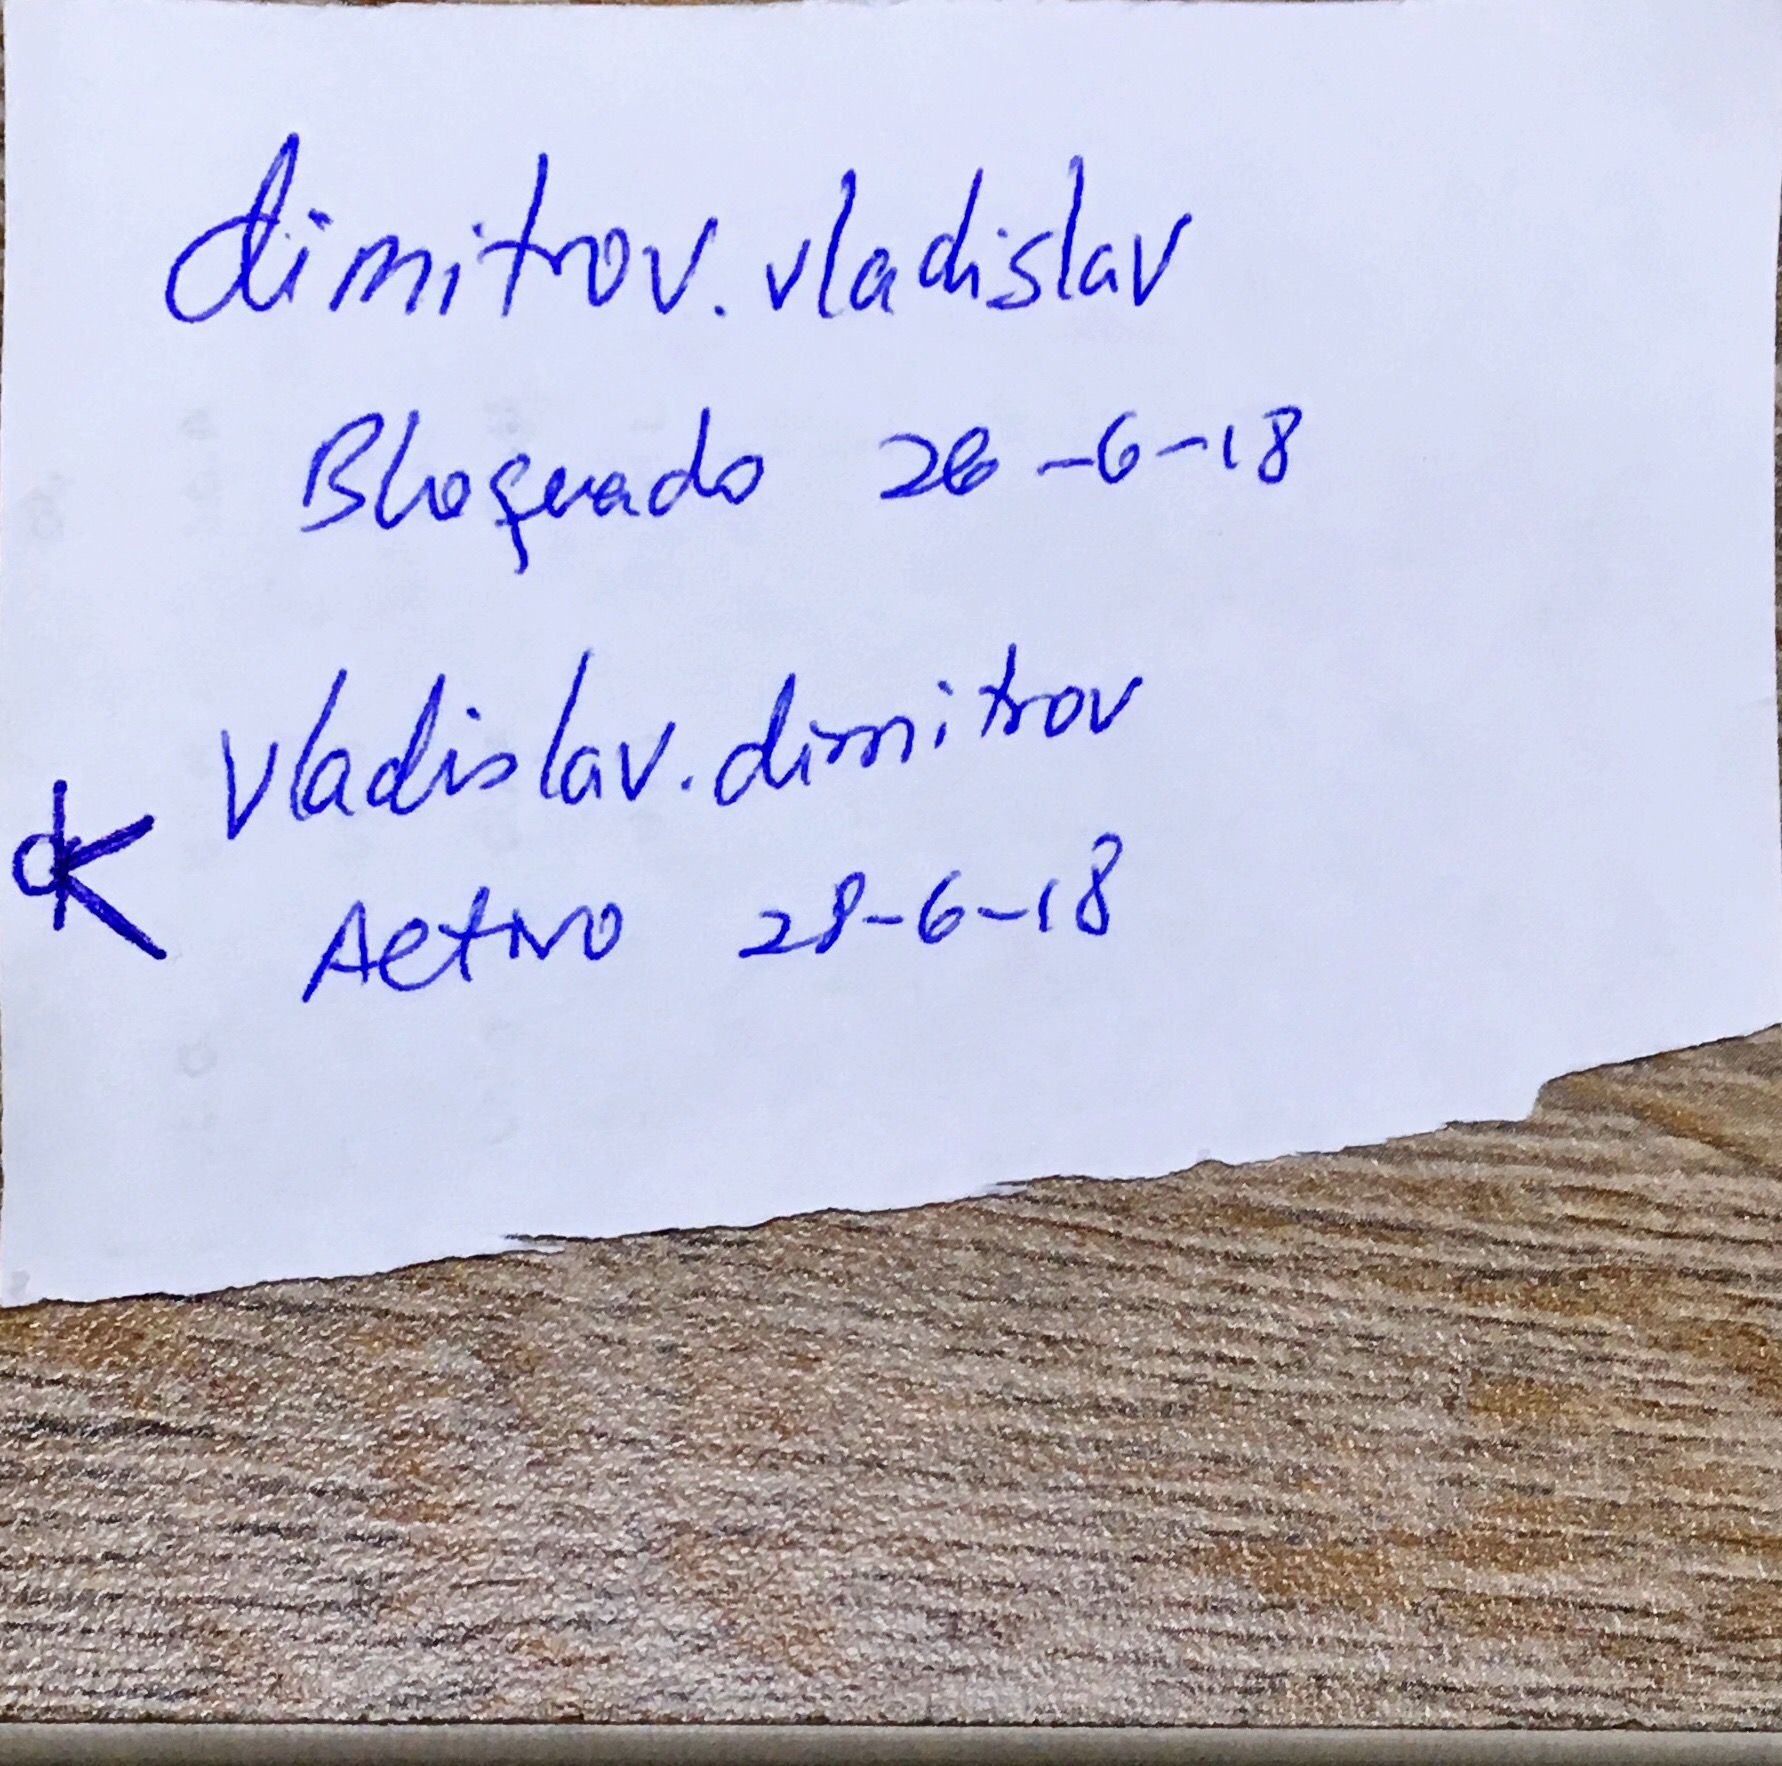 dimitrov.vladislav
Bloquado 26-6-18
vladislav.dimitrov
OK
Activo 28-6-18